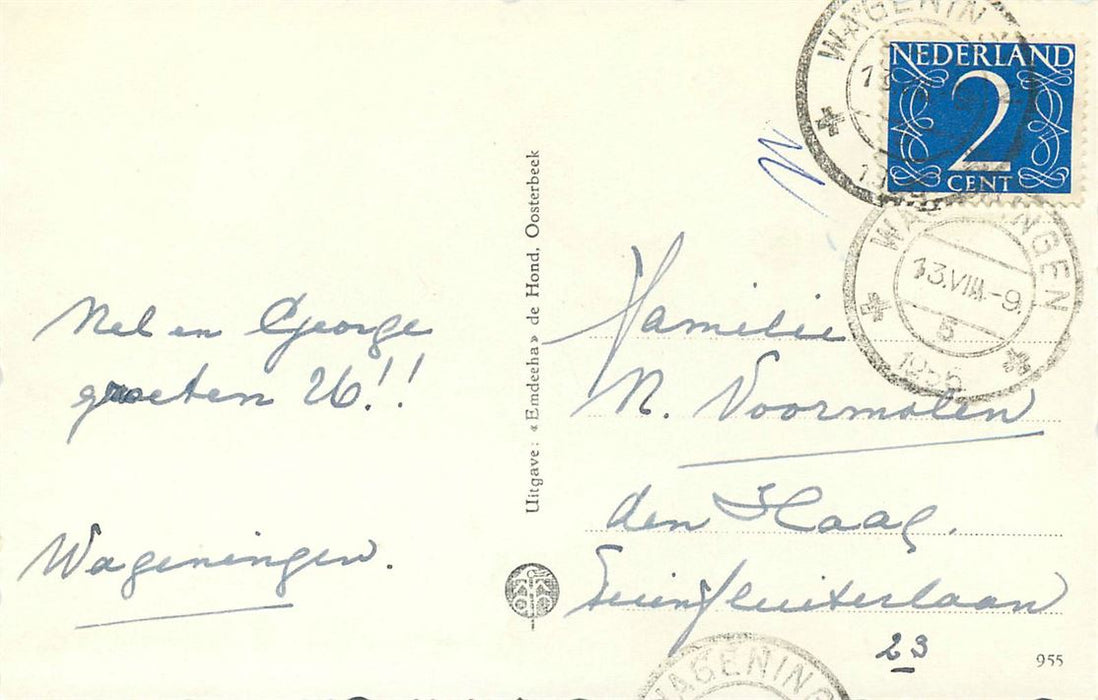 Nel en George
groeten U!!
Wageningen.
Uitgave: «Emdeeha» de Hond, Oosterbeek
NEDERLAND
2
CENT
WAGENINGEN
13.VIII.-9.
5
Familie
N. Voormolen
den Haag.
23
955
WAGENING